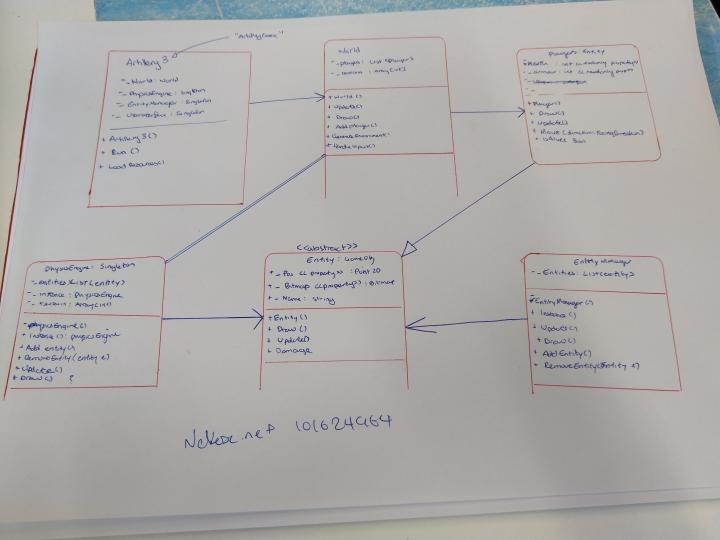 "ArtilleryGame"
Artillery 3
- _World: World
- _PhysicsEngine: Singleton
- _EntityManager: Singleton
- _UserInterface: Singleton
+ Artillery3()
+ Run ()
+ LoadResources()
World
- _players: List<Player>
- _terrain: Array[int]
+ World ()
+ Update()
+ Draw()
+ Add Player()
+ Generate Environment()
+ Handle Input()
Player: Entity
+ Player()
+ Draw()
+ Update()
+ isAlive Bool
PhysicsEngine: Singleton
- _entities: List<Entity>
- _instance: PhysicsEngine
- _terrain: Array(int)
- physicsEngine()
+ Instance (): physicsEngine
+ Add entity()
+ RemoveEntity(entity e)
+ Update()
+ Draw() ?
<<abstract>>
Entity: GameObj
+ _ Pos << property>> : Point 2D
+ _ Bitmap <<property>>: Bitmap
+ _ Name: string
+ Entity()
+ Draw ()
+ Update()
+ Damage
Entity Manager
- _ Entities: List<entity>
+ EntityManager()
+ Instance ()
+ Update()
+ Draw()
+ AddEntity()
+ RemoveEntity(Entity e)
101624964